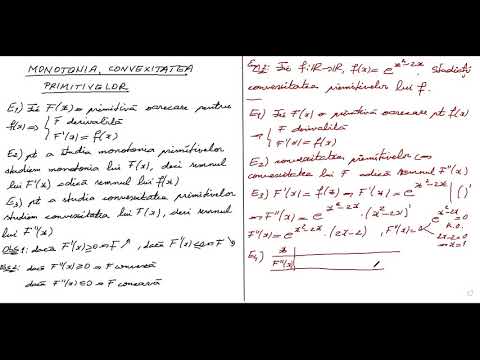 MONOTONIA, CONVEXITATEA
PRIMITIVELOR
E1) Fie F(x) o primitivă oarecare pentru
f(x) ⇒ { F derivabilă
F'(x) = f(x)
E2) pt a studia monotonia primitivelor
studiem monotonia lui F(x), deci semnul
lui F'(x) adică semnul lui f(x)
E3) pt a studia convexitatea primitivelor
studiem convexitatea lui F(x), deci semnul
lui F''(x)
Obs 1: dacă F'(x) ≥ 0 ⇒ F ↗, dacă F'(x) ≤ 0 ⇒ F ↘
dacă F''(x) ≥ 0 ⇒ F convexă
dacă F''(x) ≤ 0 ⇒ F concavă
Fie f: ℝ → ℝ, f(x) = e^{x²-2x}. Studiați
convexitatea primitivelor lui f.
E1) Fie F(x) o primitivă oarecare pt f(x)
⇒ { F derivabilă
F'(x) = f(x)
E2) convexitatea primitivelor ⇔
convexitatea lui F adică semnul F''(x)
E3) F'(x) = f(x) ⇒ F'(x) = e^{x²-2x} | ( )'
⇒ F''(x) = e^{x²-2x} · (x²-2x)'
F''(x) = e^{x²-2x} · (2x-2), F''(x) = 0
e^{x²-2x} = 0
2x-2=0
⇒ x=1
E4) x
F''(x)